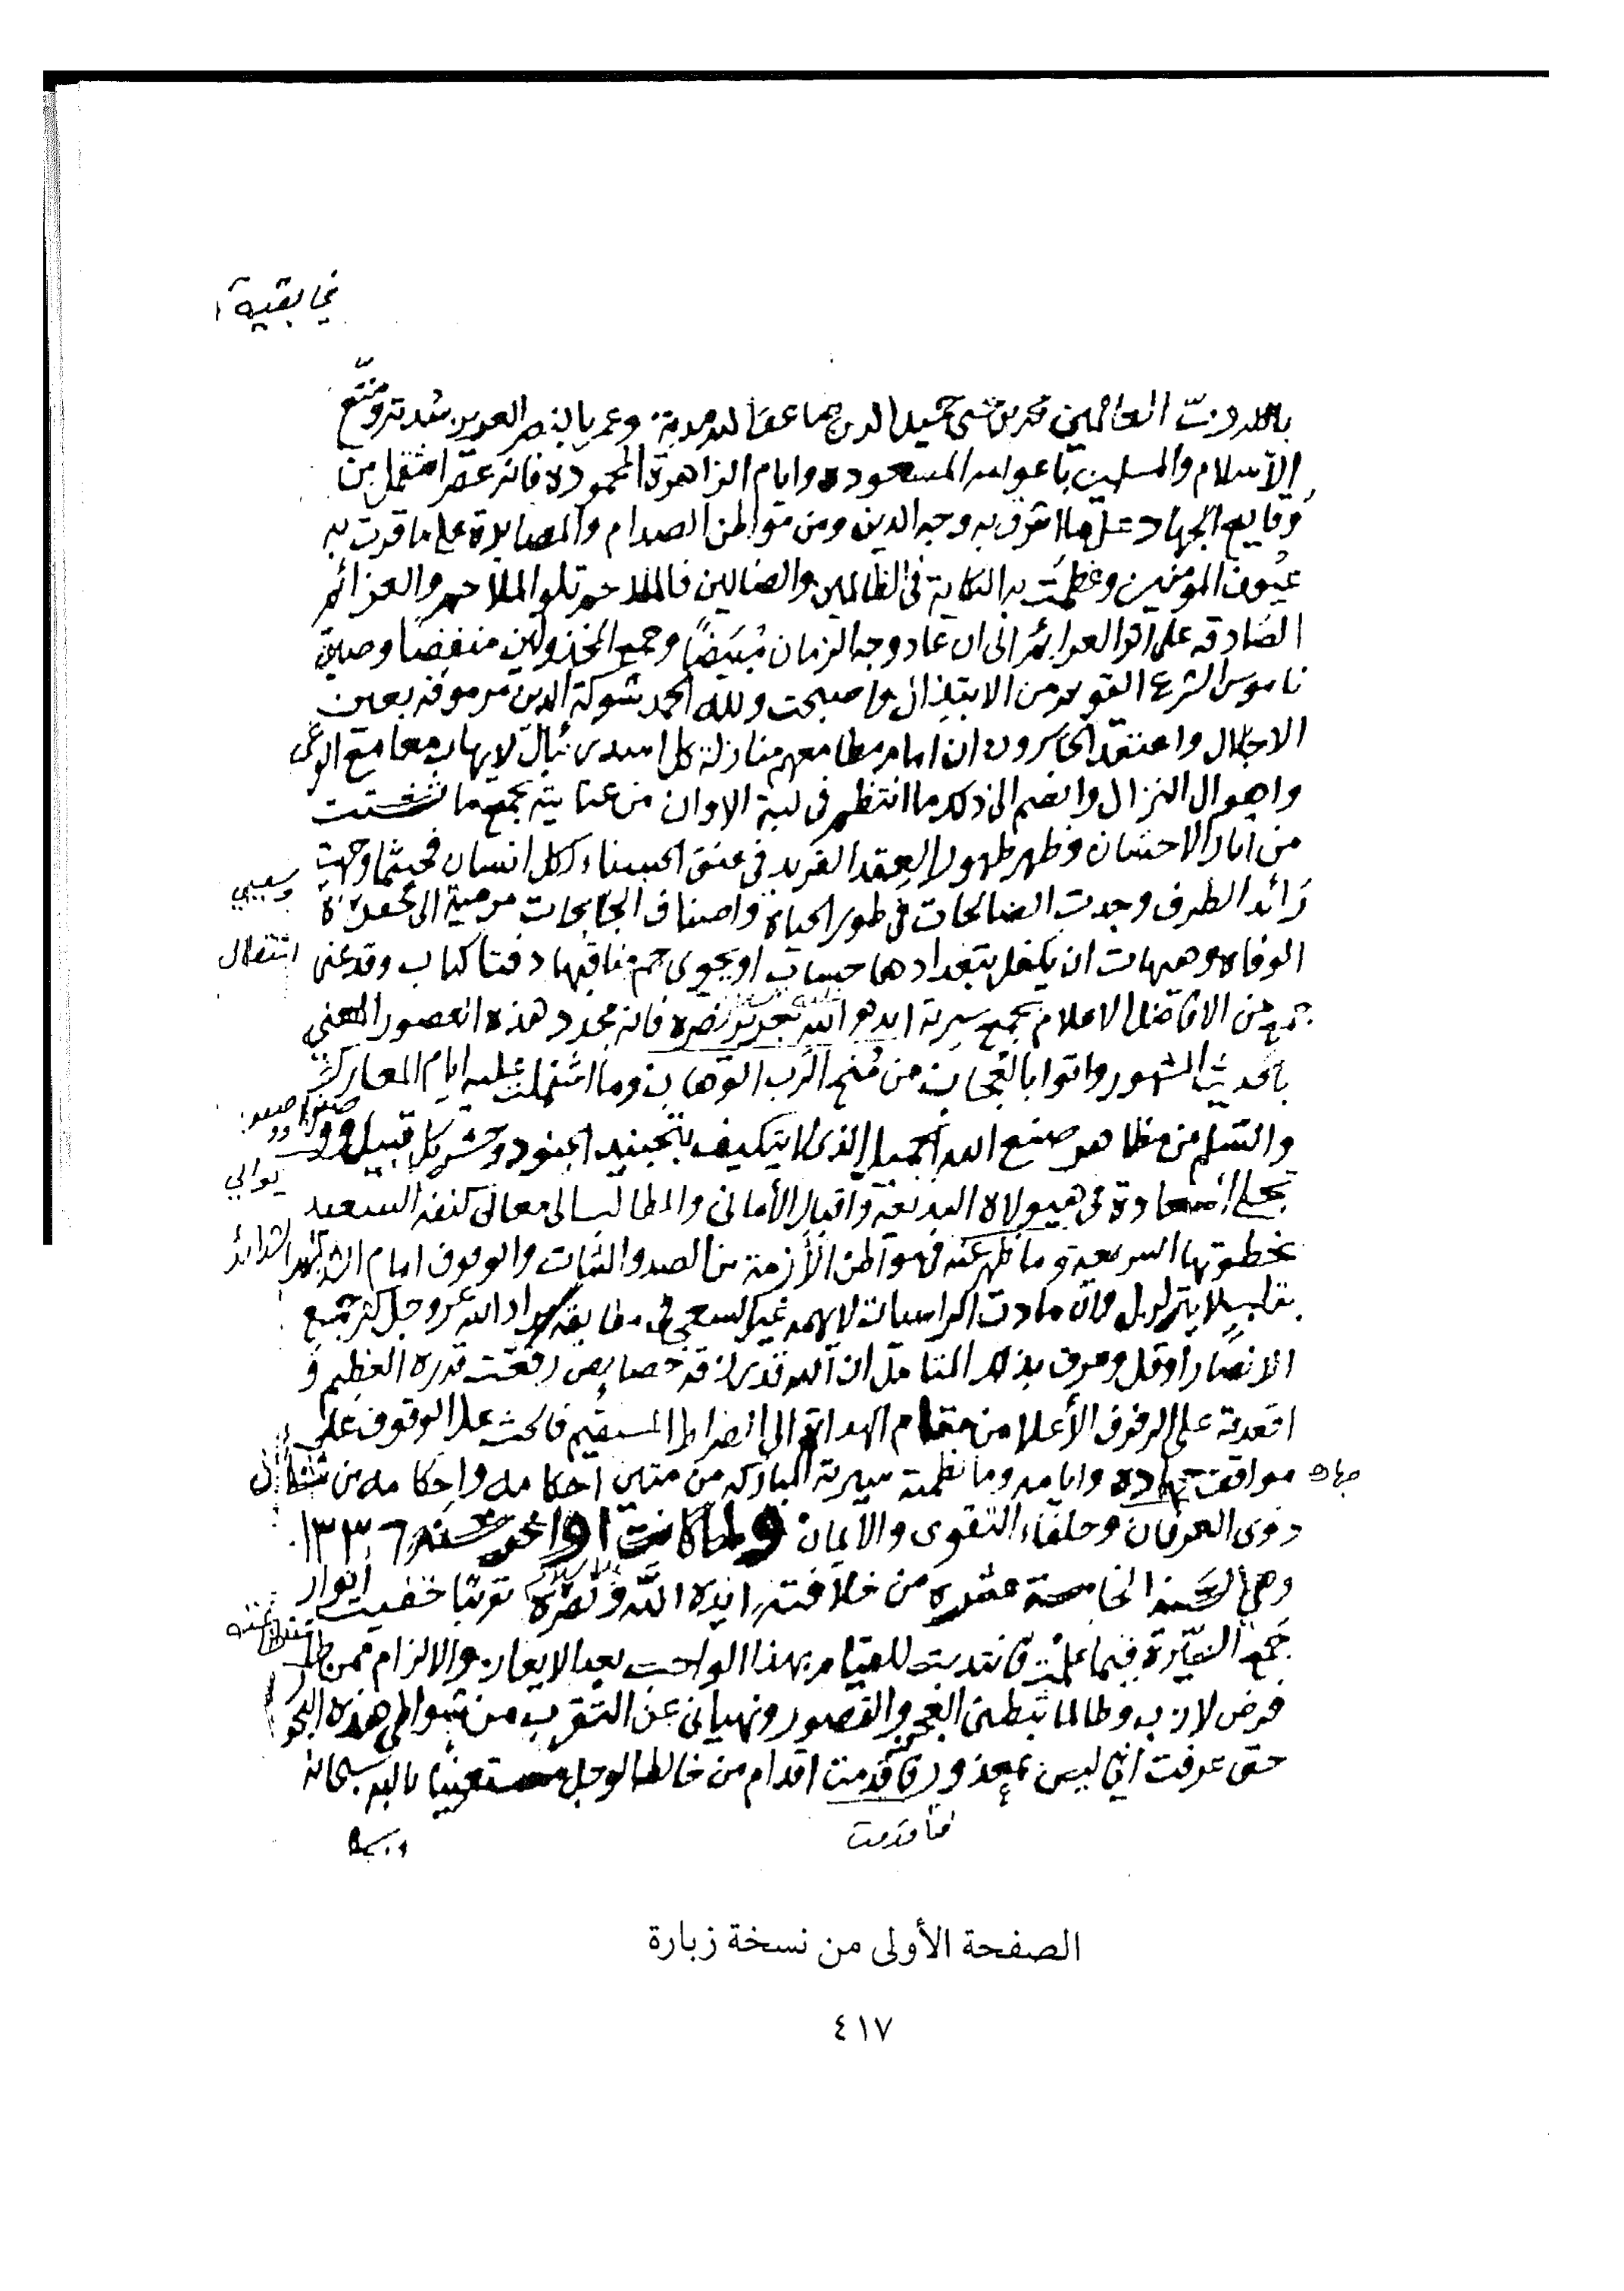 في بقية
بالله رب العالمين محمد بن يحيى حميد الدين حماه الله وعمر بالنصر العزيز مدته ومتع
الاسلام والمسلمين باعوامه المسعوده وايام الزاهرة المحموده فانه عصر اشتمل من
وقايع الجهاد على ما اشرق به وجه الدين ومن مواطن الصدام والمصابرة على ما قرت به
عيون المومنين وعظمت به النكاية في الظالمين والضالين فالملاحم تلو الملاحم والعزائم
الصادقه على اثر العزائم الى ان عاد وجه الزمان مبيضا وجمع المخذولين منفضا وصين
ناموس الشرع القويم من الابتذال واصبحت ولله الحمد شوكة الدين مرموقه بعين
الاجلال واعتقد الخاسرون ان امام مطامعهم منازلة كل اسد رئبال لايهاب معامع الوغى
واهوال النزال وانضم الى ذلك ما انتظم في لبة الاوان من عنايته بجمع ما تشتت
من اثار الاحسان فظهر ظهور العقد الفريد في عنق الحسناء لكل انسان فحيثما وجهت
رائد الطرف وجدت الصالحات في طور الحياة واصناف الجامحات مرمية الى
الوفاه وهيهات ان يكفل بتعدادها حساب او يحوى جم مناقبها دفتا كتاب وقد عنى
انتقال
جمع من الافاضل الاعلام بجمع سيرته ايده الله بعزيز نصره فانه مجدد هذه العصور المعني
بالحديث المشهور واتوا بالعجاب من منح الرب الوهاب وما اشتملت عليه ايام المعارك
والسلم من مظاهر صنع الله الجميل الذى لا يتكيف بتجنيد الجنود وحشر كل قبيل
يوالي
تجلي السعادة في هيولاه البديعة واقبال الأمانى والمطالب الى معالى كنفه السعيد
بخطوتها السريعة وما ظهر عنه في مواطن الأزمة من الصبر والثبات والوقوف امام الشدائد
الشدائد
بقلب لا يتزلزل وان مادت الراسيات لا يهمه غير السعي في مطابقة مراد الله عز وجل كثر جميع
الانصار او قل وعرف بذلك المتامل ان الله قد خصايص رفعت قدره العظيم و
اقعدته على الرفرف الأعلا من مقام الهداية الى الصراط المستقيم فالحث على الوقوف على
مواقف جهاده وايامه وما نظمته سيرته المباركه من متين احكامه واحكامه من شأن
جهاده
ذوى العرفان وحلفاء التقوى والايمان ولما كانت اواخر سنه ١٣٣٦
وهي السنه الخامسة عشره من خلافته ايده الله ونصره
جمع السيرة فيما علمت فانتدبت للقيام بهذا الواجب بعد الايعاز والالزام ممن طاعته
فرض لازب وطالما ثبطني العجز والقصور ونهياني عن التقرب من شواطي هذه البحور
حتى عرفت اني ليس بمعذور فاقدمت اقدام من خالطه الوجل مستعينا بالله سبحانه
فاقدمت
الصفحة الأولى من نسخة زبارة
٤١٧